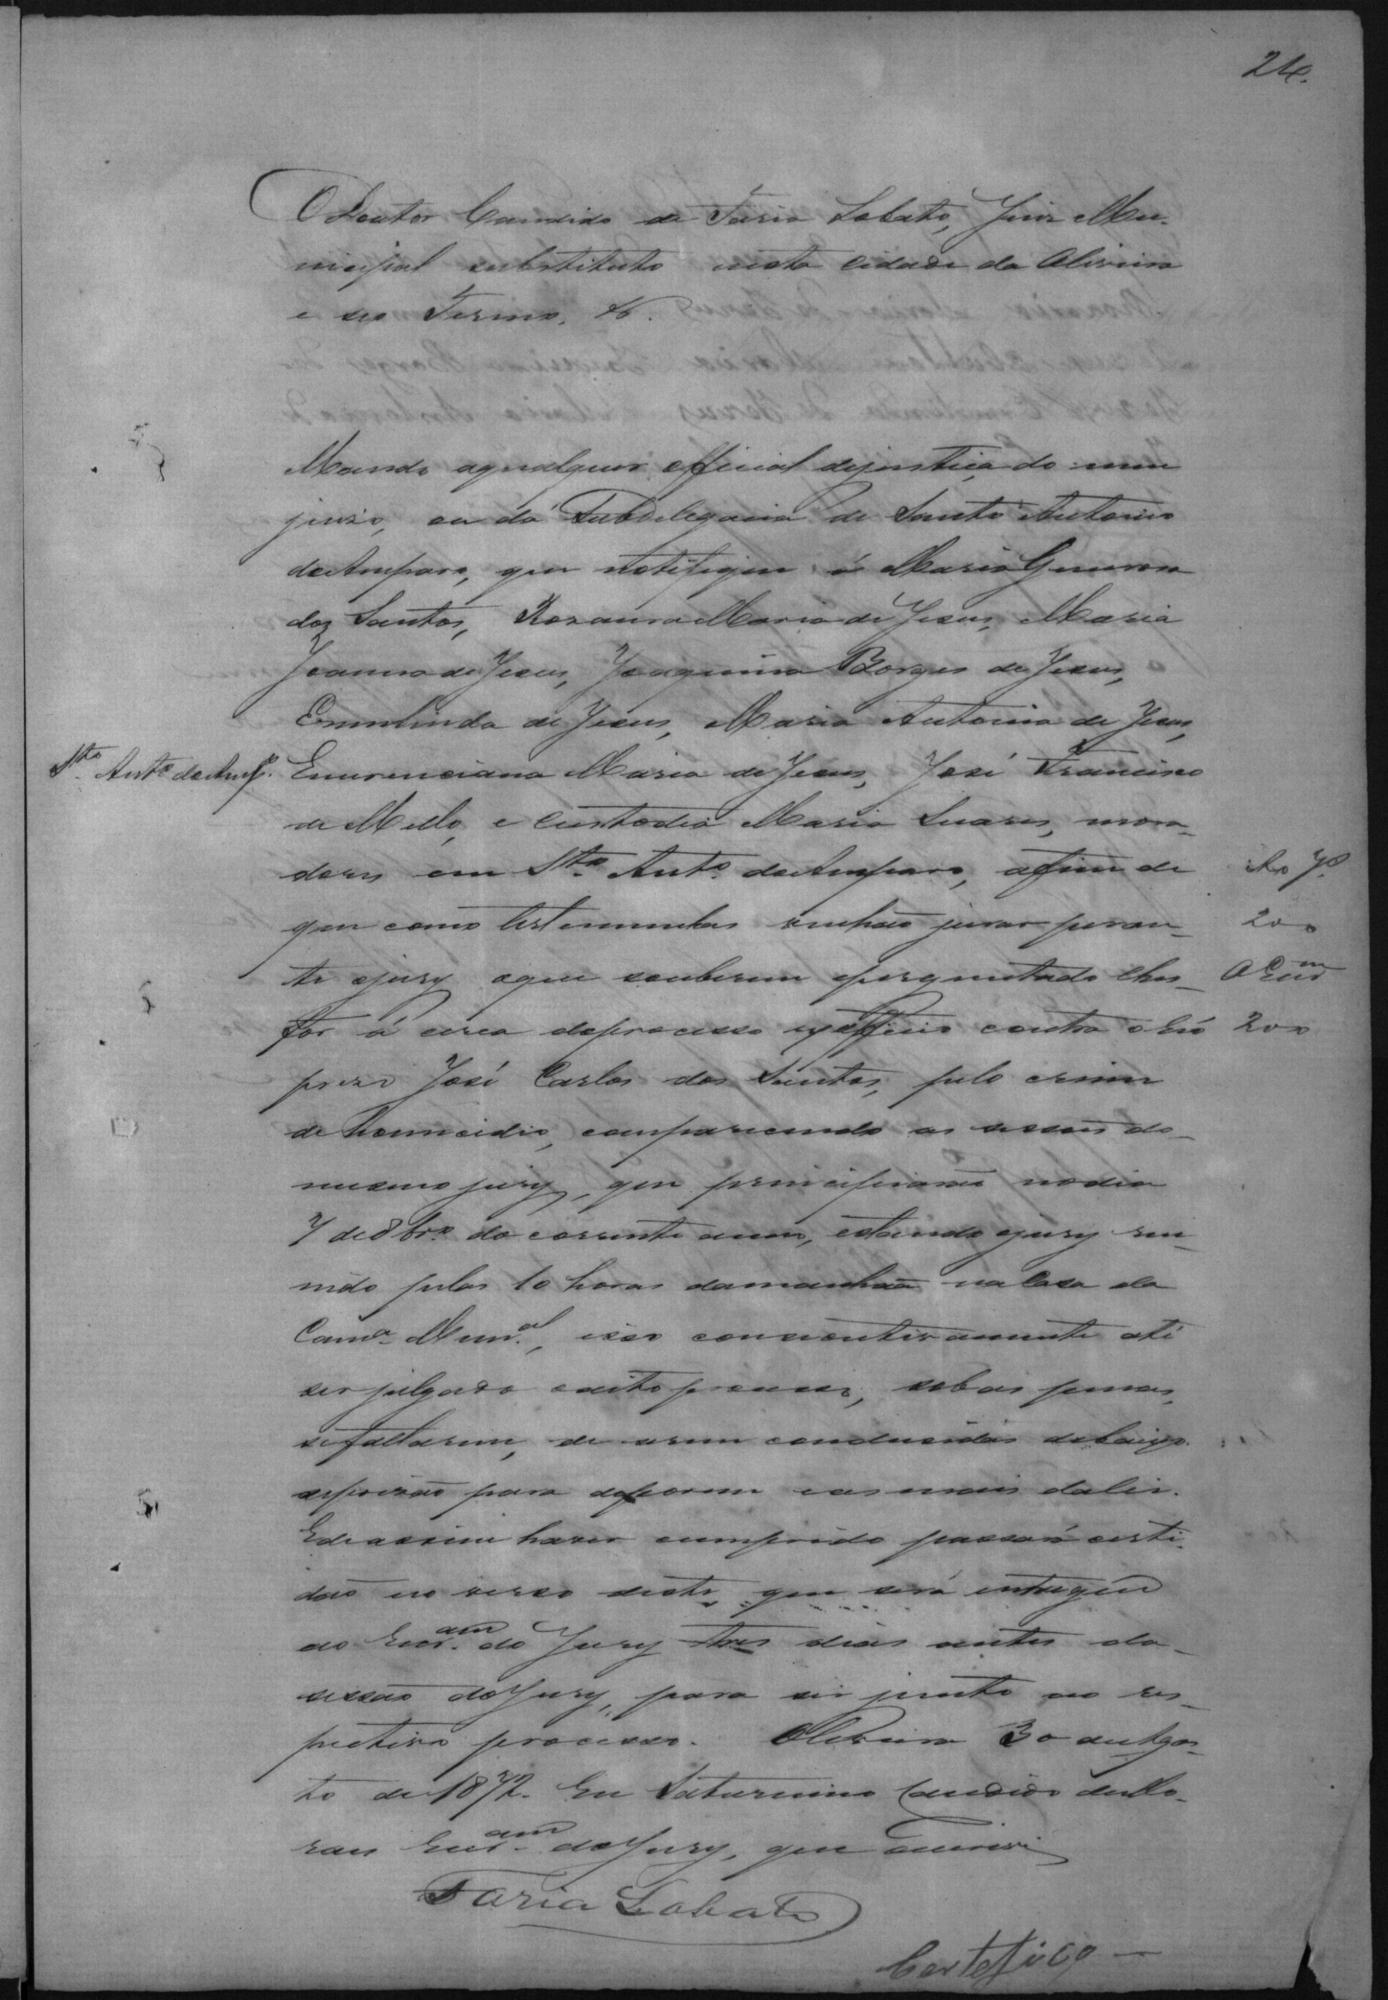 24.
O Doutor Candido de Faria Lobato, Juiz Mu-
nicipal substituto nesta cidade da Oliveira
e seo Termo. &.
Mando aqualquer official dejustiça do meu
juizo, ou da Subdelegacia de Santo Antonio
doAmparo, que notifique á Maria
dos Santos, Rosaura Maria de Jesus, Maria
Joanna de Jesus, Joaquina Borges de Jesus,
Ermelinda de Jesus, Maria Antonia de Jesus,
Sto. Anto. doAmpo. Emerenciana Maria de Jesus, José Francisco
de Mello, e Custodia Maria Soares, mora-
dores em Sto. Anto. doAmparo, afim de
que como testemunhas venhão jurar peran-
200
te ojury oque souberem eperguntado lhes
O Escm
for á cerca doprocesso exofficio contra o réo
200
prezo José Carlos dos Santos, pelo crime
de homicidio, comparecendo as sessoes do
mesmo jury, que principiará nodia
7 de 8bro. do corrente anno, estando ojury reu-
nido pelas 10 horas damanhãa naCasa da
Camra. Munal., isso consecutivamente até
ser julgado odito processo, sobas penas,
sefaltarem, de serem conduzidas debaixo
deprizão para deporem easmais dalei.
Edeassim haver cumprido passará certi-
dão no verso deste, que será entregue
ao Escram. do Jury tres dias antes da
sessão doJury, para ser junto ao res-
pectivo processo. Oliveira 30 deAgos-
to de 1872. Eu Saturnino Candido deMo-
raes Escram. doJury, que escrevi
Faria Lobato
Certefico